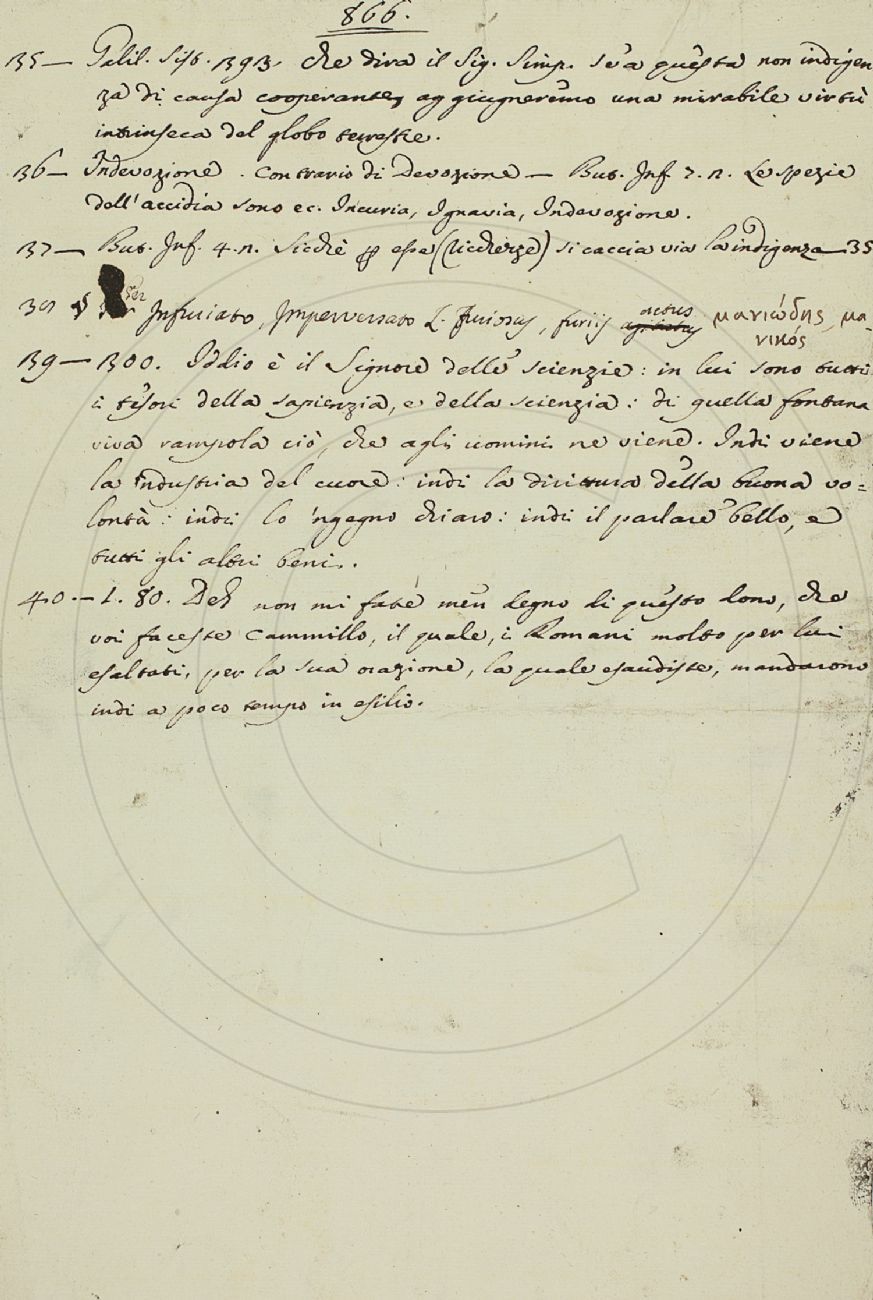 866.
35— Galil. Sist. 393. Che dirà il Sig. Simp. se a questa non indigen
za di causa cooperante, aggiugneremo una mirabile virtù
intrinseca del globo terrestre.
36— Indevozione. Contrario di Devozione — But. Inf. 7. n. Le spezie
dell'accidia sono ec. Incuria, Ignavia, Indevozione.
37— But. Inf. 4. n. Sicchè esse (ricchezze) si caccia via la indigenza—35
38 Infuriato, Imperversato L. furiosus, furiis actus μανιώδης, μα-
νικός
39— 300. Iddio è il Signore delle scienzie: in lui sono tutti
i tesori della sapienzia, e della scienzia: di quella fontana
viva rampola ciò, che agli uomini ne viene. Indi viene
la industria del cuore: indi la dirittura della buona vo=
lontà: indi lo 'ngegno chiaro: indi il parlare bello, e
tutti gli altri beni.
40.— 1. 80. Deh non mi fate men degno di questo dono, che
voi faceste Cammillo, il quale, i Romani molto per lui
esaltati, per la sua orazione, la quale esaudiste, mandarono
indi a poco tempo in esilio.